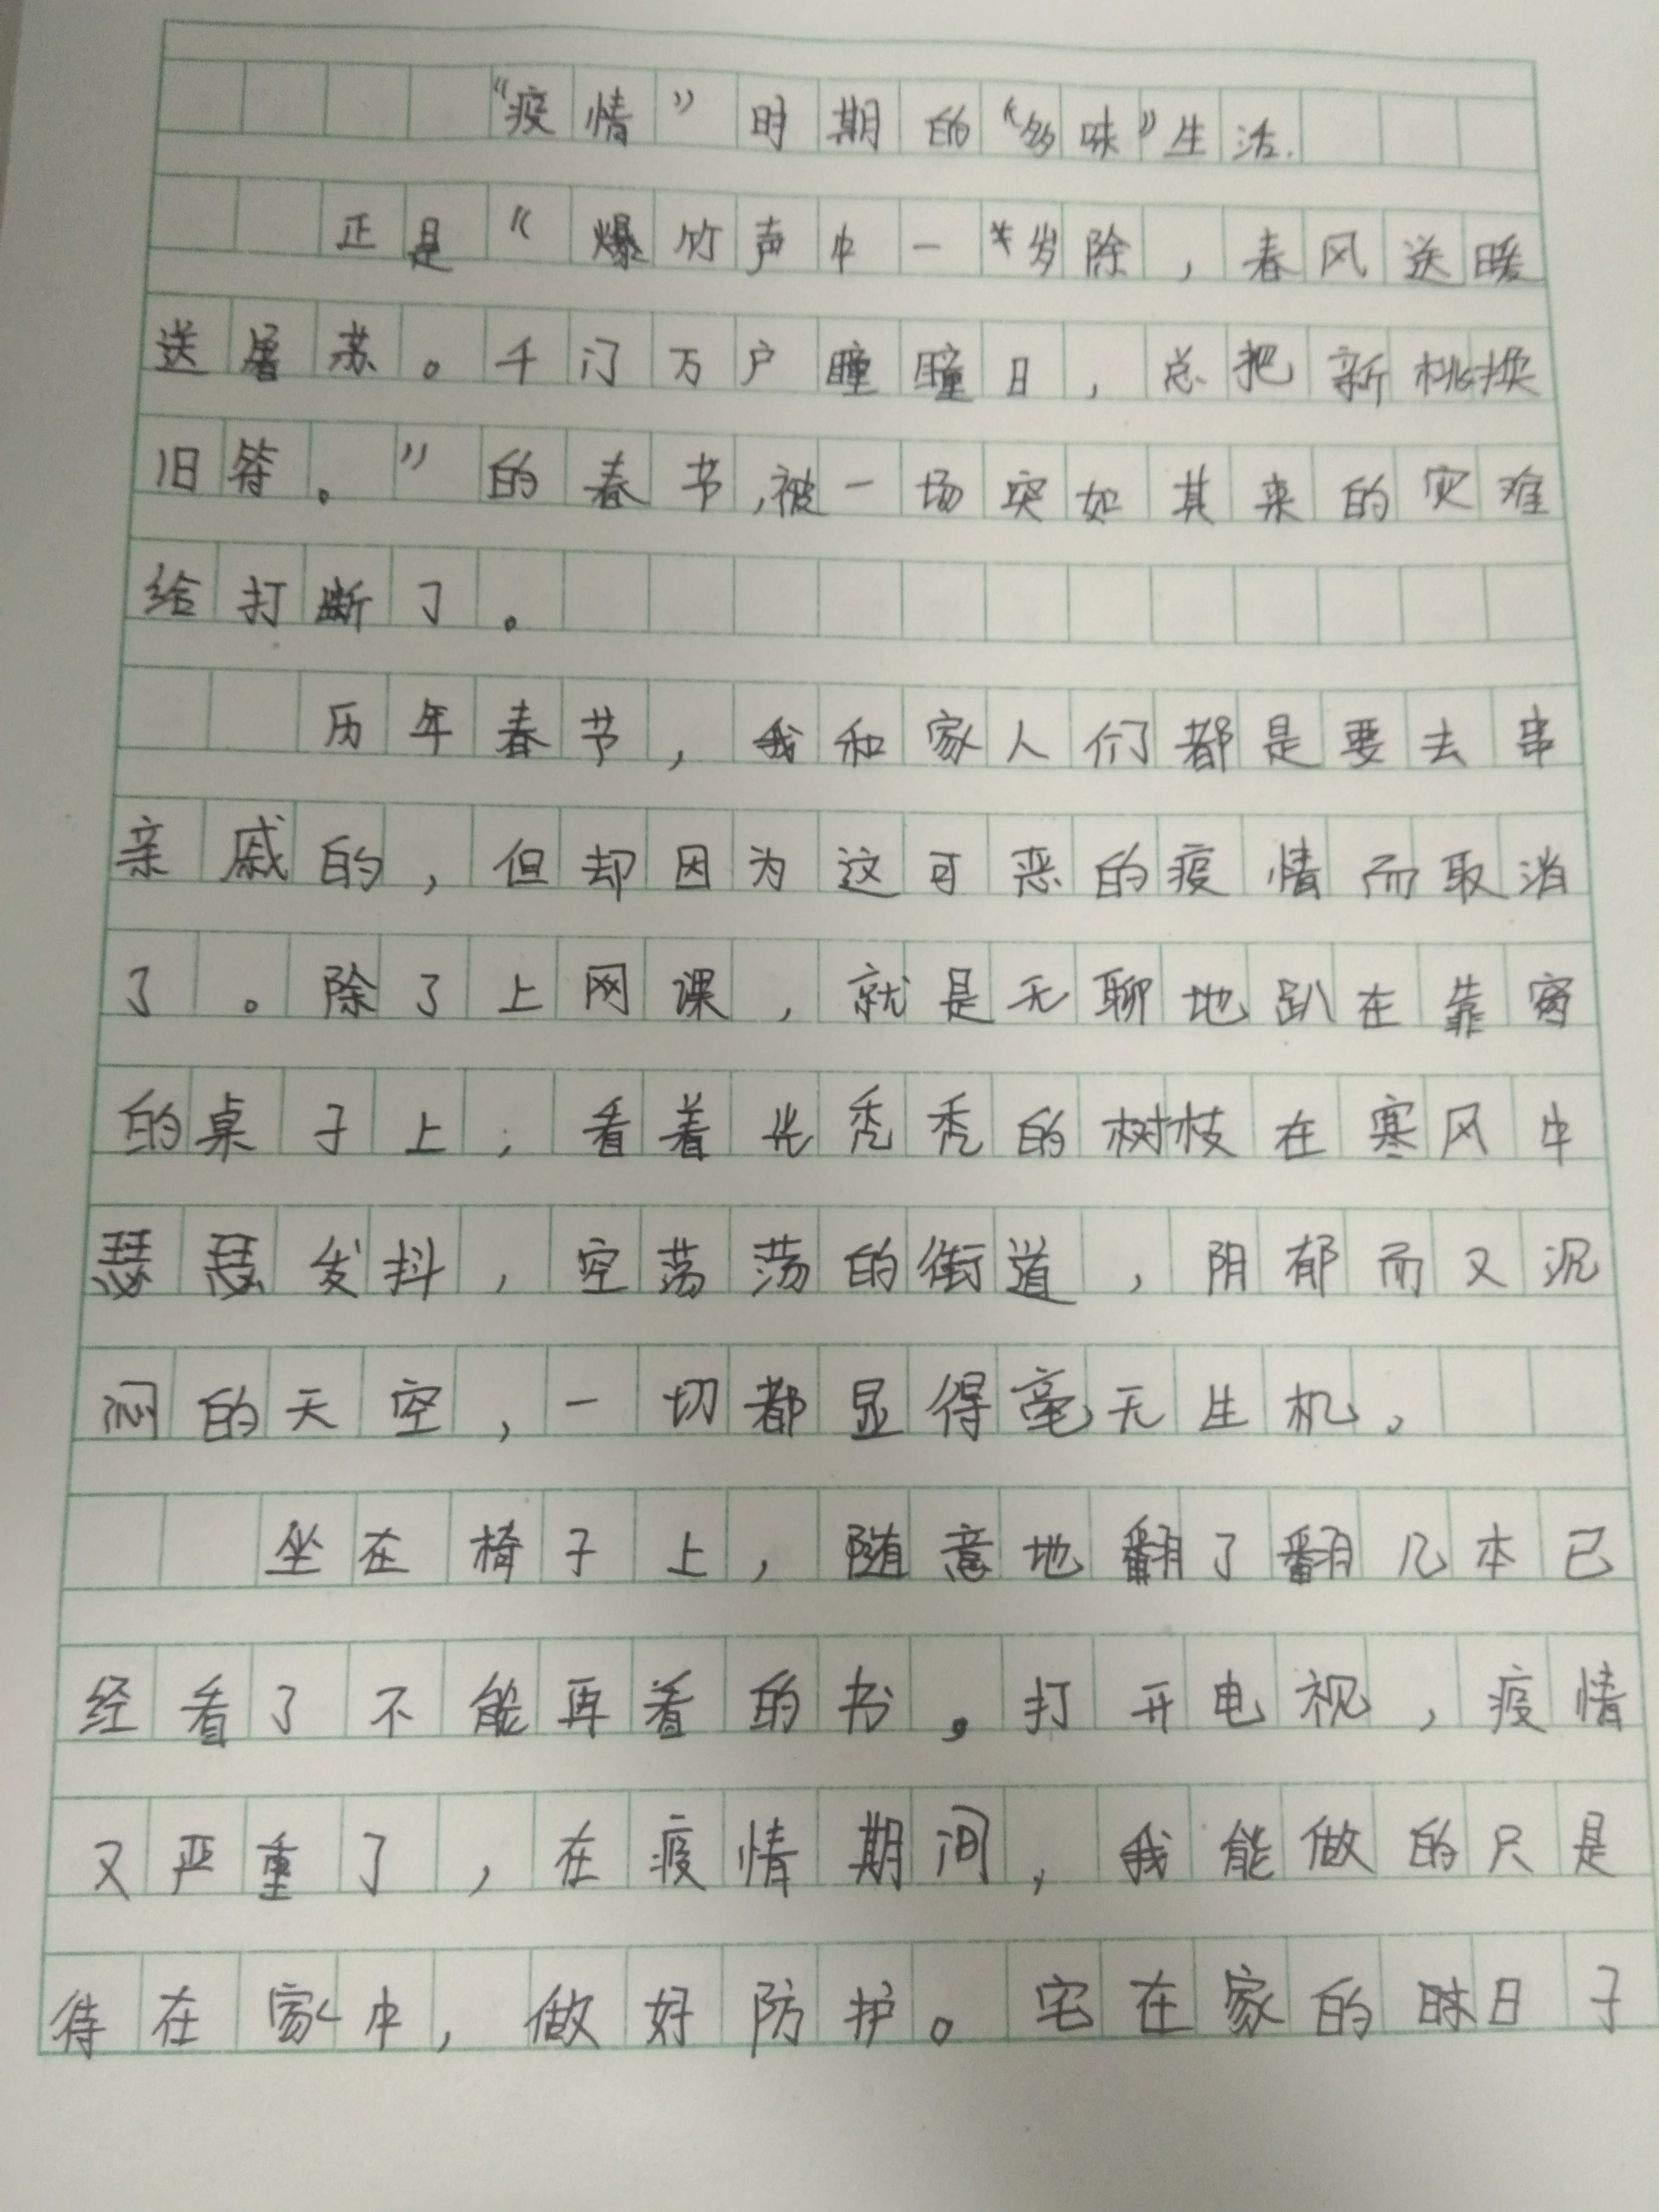 “疫情”时期的“多味”生活.
正是“爆竹声中一岁除，春风送暖
送屠苏。千门万户瞳瞳日，总把新桃换
旧符。”的春节,被一场突如其来的灾难
给打断了。
历年春节，我和家人们都是要去串
亲戚的，但却因为这可恶的疫情而取消
了。除了上网课，就是无聊地趴在靠窗
的桌子上，看着光秃秃的树枝在寒风中
瑟瑟发抖，空荡荡的街道，阴郁而又沉
闷的天空，一切都显得毫无生机。
坐在椅子上，随意地翻了翻几本已
经看了不能再看的书。打开电视，疫情
又严重了，在疫情期间，我能做的只是
待在家中，做好防护。宅在家的日子